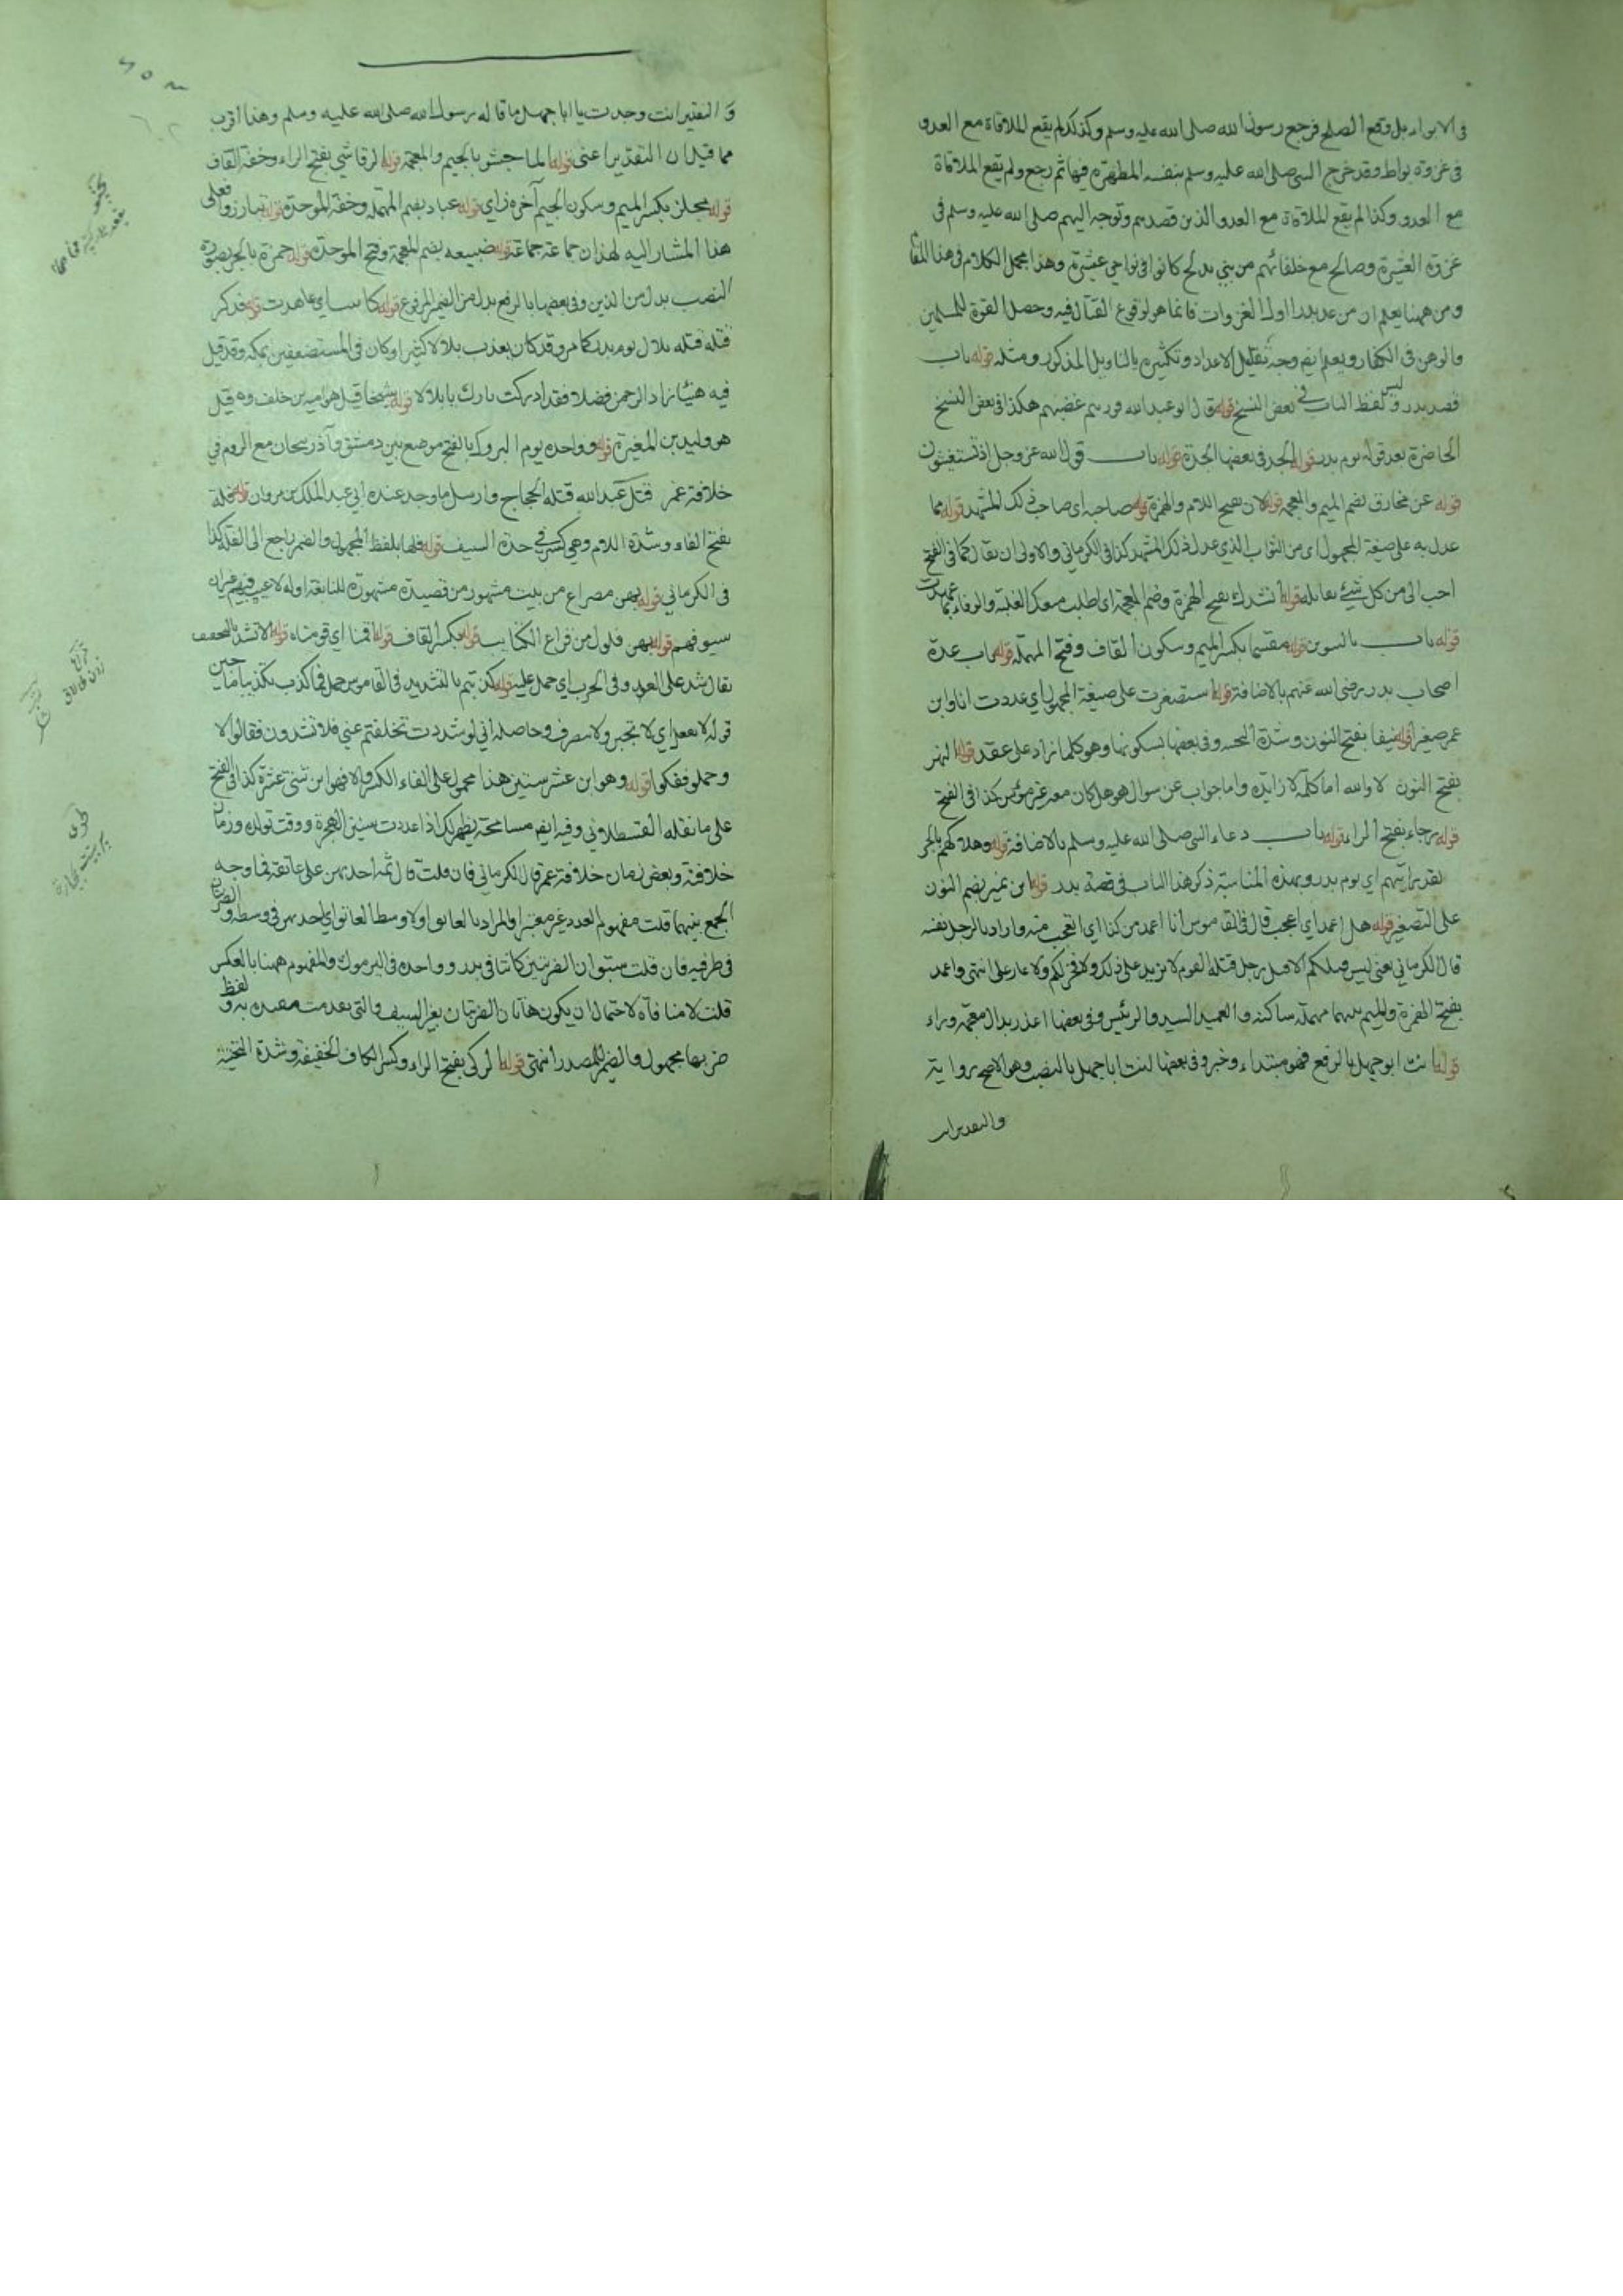 في الابواء بل وقع الصلح فرجع رسول الله صلى الله عليه وسلم وكذلك لم يقع الملاقاة مع العدو
في غزوة بواط وقد خرج النبي صلى الله عليه وسلم بنفسه المطهرة فيها ثم رجع ولم يقع الملاقاة
مع العدو وكذا لم يقع الملاقاة مع العدو الذين قصدهم وتوجه اليهم صلى الله عليه وسلم في
غزوة العشيرة وصالح مع خلفائهم من بني مدلج كانوا في نواحي عشيرة وهذا مجمل الكلام في هذا المقام
ومن ههنا يعلم ان من عد بدرا اول الغزوات فانما هو لوقوع القتال فيه وحصل القوة للمسلمين
والوهن في الكفار ويعلم ايضا وجه تقليل الاعداد وتكثيره بالتاويل المذكور ومثله قوله باب
قصة بدر وليس لفظ الباب في بعض النسخ قوله قال ابو عبد الله فورهم غضبهم هكذا في بعض النسخ
الحاضرة بعد قوله يوم بدر قوله الحد في بعضها الحدة قوله باب قول الله عز وجل اذ تستغيثون
قوله عن مخارق بضم الميم والمعجمة قوله لان بفتح اللام والهمزة قوله صاحبه اي صاحب ذلك المشهد قوله مما
عدل به على صيغة المجهول اي من الثواب الذي عدل ذلك المشهد كذا في الكرماني والاولى ان يقال كما في الفتح
احب الي من كل شيء يقابله قوله انشدك بفتح الهمزة وضم المعجمة اي اطلب منك الغلبة والوفاء بما عهدت
قوله باب بالتنوين قوله مقسما بكسر الميم وسكون القاف وفتح المهملة قوله باب عدة
اصحاب بدر رضي الله عنهم بالاضافة قوله استصغرت على صيغة المجهول اي عددت انا وابن
عمر صغيرا قوله نيفا بفتح النون وشدة التحتية وفي بعضها بسكونها وهو كلما زاد على عقد قوله النهر
بفتح النون لا والله اما كلمة لا زايدة واما جواب عن سوال هو هل كان معه غير مؤمن كذا في الفتح
قوله رجاء بفتح الراء قوله باب دعاء النبي صلى الله عليه وسلم بالاضافة قوله وهلاكهم بالجر
تقديرا اي يوم بدر وبهذه المناسبة ذكر هذا الباب في قصة بدر قوله ابن نمير بضم النون
على التصغير قوله هل اعمد اي اعجب قال في القاموس انا اعمد من كذا اي اتعجب منه واراد بالرجل نفسه
قال الكرماني يعني ليس قتلكم الا قتل رجل قتله القوم لا يزيد على ذلك ولا فخر لكم ولا عار علي انتهى واعمد
بفتح الهمزة والميم بينهما مهملة ساكنة والعميد السيد والرئيس وفي بعضها اعذر بذال معجمة وراء
قوله انت ابو جهل بالرفع فهو مبتداء وخبر وفي بعضها انت ابا جهل بالنصب وهو الاصح رواية
والتقدير انت
و التقدير انت وجدت يا ابا جهل ما قاله رسول الله صلى الله عليه وسلم وهذا اقرب
مما قيل ان التقدير اعني قوله الماجشو بالجيم والمعجمة قوله الرقاشي بفتح الراء وخفة القاف
قوله مجلز بكسر الميم وسكون الجيم آخره زاي قوله عباد بضم المهملة وخفة الموحدة قوله تبارزوا فعلى
هذا المشار اليه لهذان جماعة جماعة قوله ضبيعه بضم المعجمة وفتح الموحدة قوله حمزة بالجر بصورة
النصب بدل من الذين وفي بعضها بالرفع بدل من الضمير المرفوع قوله كاتبت اي عاهدت قوله فذكر
قتله قتله بلال يوم بدر كما مر وقد كان يعذب بلالا كثيرا وكان في المستضعفين بمكه وقد قيل
فيه هنيئا زاد الرحمن فضلا فقد ادركت ثارك يا بلال قوله شيخا قيل هو امية بن خلف وقيل
هو وليد بن المغيرة قوله وواحدة يوم اليرموك بالفتح موضع بين دمشق وآذربيجان مع الروم في
خلافة عمر قتل عبد الله قتله الحجاج وارسل ما وجد عنده الى عبد الملك بن مروان قوله فلة
بفتح الفاء وشدة اللام وهي كسر في حدة السيف قوله فلها بلفظ المجهول والضمير راجع الى الفلة كذا
في الكرماني قوله بهن مصراع من بيت مشهور من قصيدة مشهورة للنابغة اوله لا عيب فيهم غير ان
سيوفهم قوله بهن فلول من قراع الكتايب قوله بكسر القاف قوله اقمنا اي قومناه قوله الا تشد بالتخفيف
يقال شد على العدو وفي الحرب اي حمل عليه قوله كذبتم بالتشديد في القاموس حمل فما كذب تكذيبا ما جبن
قوله لا نفعل اي لا نجبن ولا ننصرف وحاصله اني لو شددت تخلفتم عني فلا تشدون فقالوا لا
وحملوا ففكوا قوله وهو ابن عشر سنين هذا محمول على الغاء الكسر والا فهو ابن ثنتي عشرة كذا في الفتح
على ما نقله القسطلاني وفيه ايضا مسامحة يظهر لك اذا عددت سني الهجرة ووقت تولده وزمان
خلافته وبعض زمان خلافة عمر قال الكرماني فان قلت قال ثمه احديهن على عاتقه فما وجه
الجمع بينهما قلت مفهوم العدد غير معتبر والمراد بالعاتق اولا وسط العاتق اي احديهن في وسطه والضربتان
في طرفيه فان قلت سبق ان الضربتين كانتا في بدر وواحدة في اليرموك والمفهوم ههنا بالعكس
قلت لا منافاة لاحتمال ان يكون هاتان الضربتان بغير السيف والتي تقدمت مقيدة به ولفظ
ضربها مجهول والضمير للمصدر انتهى قوله الركي بفتح الراء وكسر الكاف الخفيفة وشدة التحتية